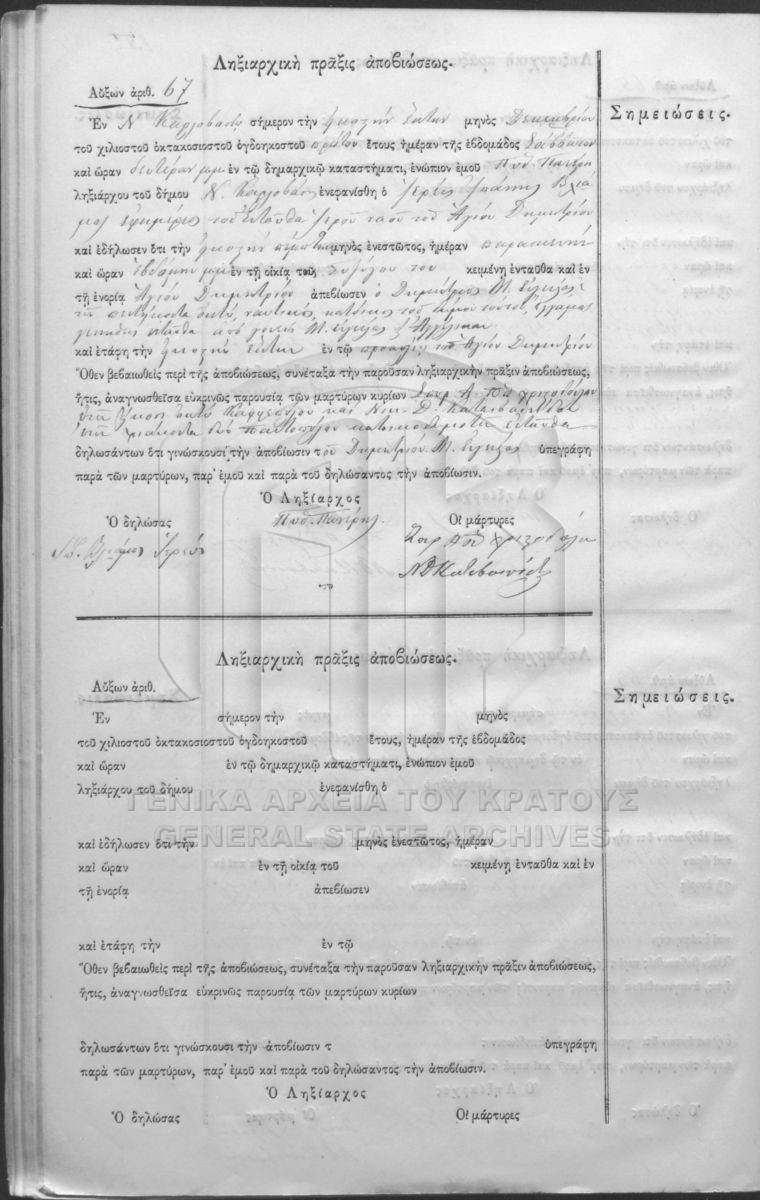 Ληξιαρχικὴ πρᾶξις ἀποβιώσεως.
Αὔξων ἀριθ. 67
Σημειώσεις.
Ἐν Ν Καρλοβασίῳ σήμερον τὴν εἰκοστὴν ἕκτην μηνὸς Δεκεμβρίου
τοῦ χιλιοστοῦ ὀκτακοσιοστοῦ ὀγδοηκοστοῦ πρώτου ἔτους ἡμέραν τῆς ἑβδομάδος Σάββατον
καὶ ὥραν δευτέραν μμ ἐν τῷ δημαρχικῷ καταστήματι, ἐνώπιον ἐμοῦ
ληξιάρχου τοῦ δήμου Ν. Καρλοβασίου ἐνεφανίσθη ὁ Ἱερεὺς
ἐφημέριος τοῦ ἐνταῦθα Ἱεροῦ ναοῦ τοῦ Ἁγίου Δημητρίου
καὶ ἐδήλωσεν ὅτι τὴν εἰκοστὴν πέμπτην μηνὸς ἐνεστῶτος, ἡμέραν παρασκευὴν
καὶ ὥραν ἑβδόμην μμ ἐν τῇ οἰκίᾳ τοῦ συζύγου του κειμένη ἐνταῦθα καὶ ἐν
τῇ ἐνορίᾳ Ἁγίου Δημητρίου ἀπεβίωσεν ὁ Δημήτριος Μ.
ναυτικὸς, κάτοικος τοῦ δήμου τούτου,
γεννηθεὶς ἐνταῦθα ἀπὸ γονεῖς Μ.
καὶ ἐτάφη τὴν εἰκοστὴν ἕκτην ἐν τῷ προαυλίῳ τοῦ Ἁγίου Δημητρίου
Ὅθεν βεβαιωθεὶς περὶ τῆς ἀποβιώσεως, συνέταξα τὴν παροῦσαν ληξιαρχικὴν πρᾶξιν ἀποβιώσεως,
ἥτις, ἀναγνωσθεῖσα εὐκρινῶς παρουσίᾳ τῶν μαρτύρων κυρίων
ὀκτὼ καὶ Νικ. Δ.
παντοπώλου ἐνταῦθα
δηλωσάντων ὅτι γινώσκουσι τὴν ἀποβίωσιν τοῦ Δημητρίου Μ. ὑπεγράφη
παρὰ τῶν μαρτύρων, παρ' ἐμοῦ καὶ παρὰ τοῦ δηλώσαντος τὴν ἀποβίωσιν.
Ὁ Ληξίαρχος
Ὁ δηλώσας
Οἱ μάρτυρες
Ἱερεὺς
Ληξιαρχικὴ πρᾶξις ἀποβιώσεως.
Αὔξων ἀριθ.
Σημειώσεις.
Ἐν σήμερον τὴν μηνὸς
τοῦ χιλιοστοῦ ὀκτακοσιοστοῦ ὀγδοηκοστοῦ ἔτους, ἡμέραν τῆς ἑβδομάδος
καὶ ὥραν ἐν τῷ δημαρχικῷ καταστήματι, ἐνώπιον ἐμοῦ
ληξιάρχου τοῦ δήμου ἐνεφανίσθη ὁ
ΓΕΝΙΚΑ ΑΡΧΕΙΑ ΤΟΥ ΚΡΑΤΟΥΣ
GENERAL STATE ARCHIVES
καὶ ἐδήλωσεν ὅτι τὴν μηνὸς ἐνεστῶτος, ἡμέραν
καὶ ὥραν ἐν τῇ οἰκίᾳ τοῦ κειμένῃ ἐνταῦθα καὶ ἐν
τῇ ἐνορίᾳ ἀπεβίωσεν
καὶ ἐτάφη τὴν ἐν τῷ
Ὅθεν βεβαιωθεὶς περὶ τῆς ἀποβιώσεως, συνέταξα τὴν παροῦσαν ληξιαρχικὴν πρᾶξιν ἀποβιώσεως,
ἥτις, ἀναγνωσθεῖσα εὐκρινῶς παρουσίᾳ τῶν μαρτύρων κυρίων
δηλωσάντων ὅτι γινώσκουσι τὴν ἀποβίωσιν τ ὑπεγράφη
παρὰ τῶν μαρτύρων, παρ' ἐμοῦ καὶ παρὰ τοῦ δηλώσαντος τὴν ἀποβίωσιν.
Ὁ Ληξίαρχος
Ὁ δηλώσας
Οἱ μάρτυρες